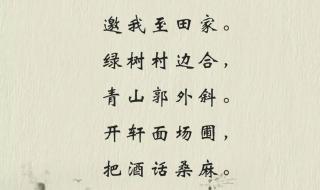 邀我至田家。
绿树村边合，
青山郭外斜。
开轩面场圃，
把酒话桑麻。